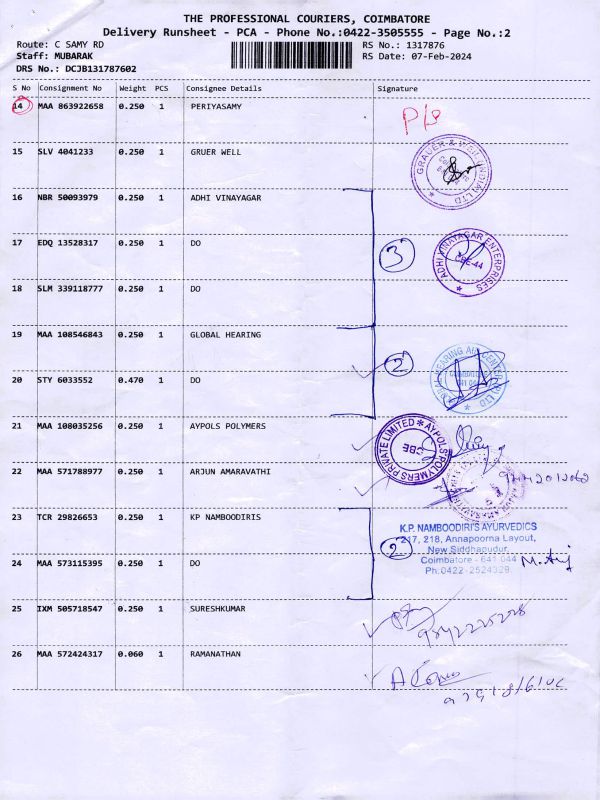 THE PROFESSIONAL COURIERS, COIMBATORE
Delivery Runsheet - PCA - Phone No.:0422-3505555 - Page No.:2
Route: C SAMY RD RS No.: 1317876
Staff: MUBARAK RS Date: 07-Feb-2024
DRS No.: DCJB131787602
S No Consignment No Weight PCS Consignee Details Signature
14 MAA 863922658 0.250 1 PERIYASAMY
15 SLV 4041233 0.250 1 GRUER WELL
GRAUER & WEIL (INDIA) LTD
16 NBR 50093979 0.250 1 ADHI VINAYAGAR
17 EDQ 13528317 0.250 1 DO 3 ADHI VINAYAGAR ENTERPRISES CBE-44
18 SLM 339118777 0.250 1 DO
19 MAA 108546843 0.250 1 GLOBAL HEARING
20 STY 6033552 0.470 1 DO 2 HEARING AID CENTRE LTD
21 MAA 108035256 0.250 1 AYPOLS POLYMERS AYPOLS POLYMERS PRIVATE LIMITED CBE
22 MAA 571788977 0.250 1 ARJUN AMARAVATHI
23 TCR 29826653 0.250 1 KP NAMBOODIRIS
K.P. NAMBOODIRI'S AYURVEDICS
217, 218, Annapoorna Layout,
2 New Siddhapudur,
Coimbatore - 641 044
Ph.0422-2524329.
24 MAA 573115395 0.250 1 DO
25 IXM 505718547 0.250 1 SURESHKUMAR
26 MAA 572424317 0.060 1 RAMANATHAN